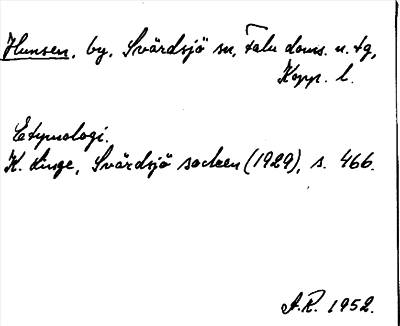 Hunsen, by, Svärdsjö sn, Falu doms. n. tg,
Kopp. l.
Etymologi.
K. Linge, Svärdsjö socken (1929), s. 466.
A.R. 1952.